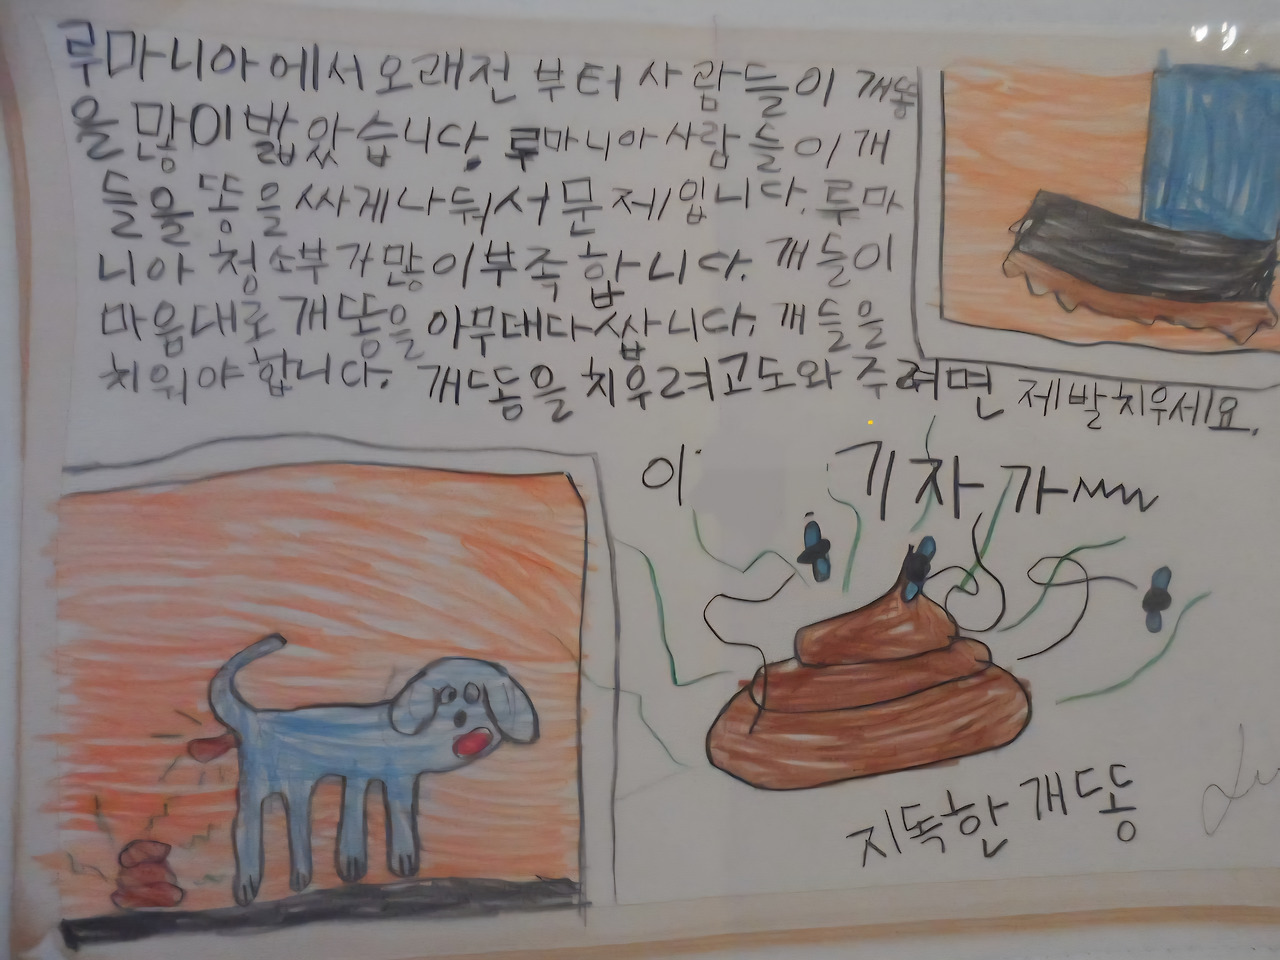 루마니아에서오래전 부터 사람들이 개똥
을 많이 밟았습니다. 루마니아 사람들이 개
들을 똥을 싸게 나둬서 문제입니다. 루마
니아 청소부가 많이 부족합니다. 개들이
마음대로 개똥을 아무데다 쌉니다. 개들을
치워야 합니다. 개똥을 치우려고 도와 주려면 제발 치우세요.
이 기자가
지독한 개똥